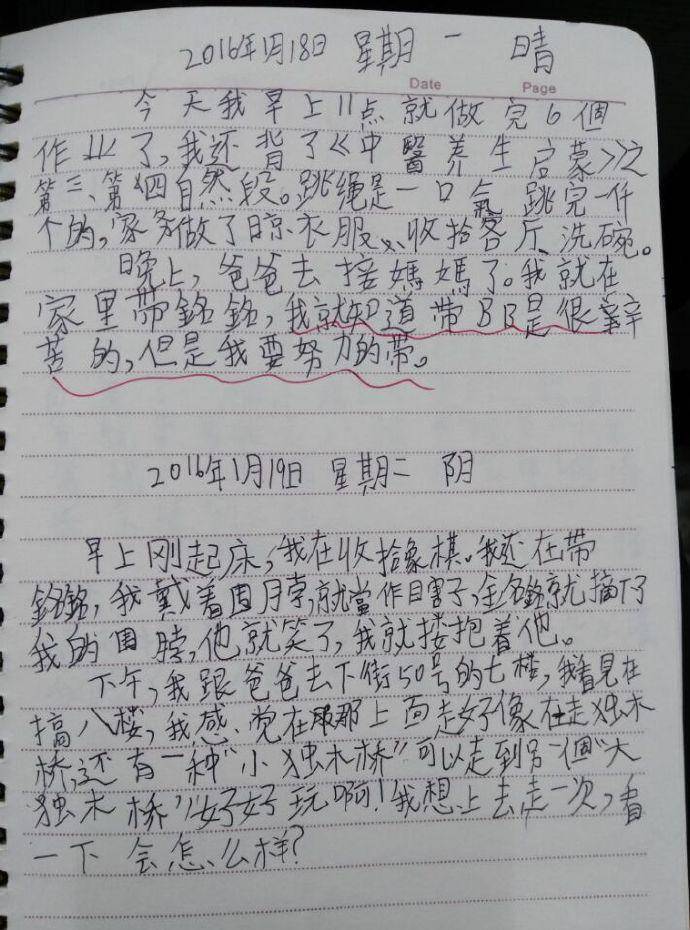 2016年1月18日 星期一 晴
Date Page
今天我早上11点就做完6個
作业了,我还背了《中醫养生启蒙》之
第三、第四自然段。跳绳是一口氣跳完一仟
个的,家务做了晾衣服、收拾客厅、洗碗。
晚上,爸爸去接媽媽了。我就在
家里带銘銘,我就知道带BB是很辛
苦的,但是我要努力的带。
2016年1月19日 星期二 阴
早上刚起床,我在收拾象棋。我还在带
銘銘,我戴着围脖,就當作瞎子,銘銘就摘下了
我的围脖,他就笑了,我就搂抱着他。
下午,我跟爸爸去下街50号的七楼,我看見在
搞八楼,我感觉在那上面走好像在走独木
桥,还有一种"小独木桥"可以走到另一個"大
独木桥"!好好玩啊!我想上去走一次,看
一下会怎么样?